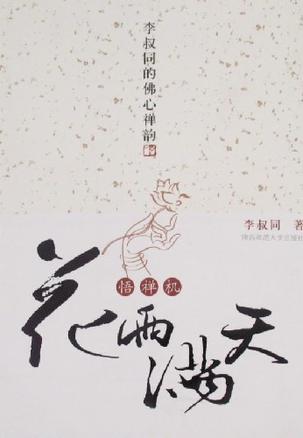 李叔同的佛心禅韵
李叔同 著
陕西师范大学出版社
悟禅机
花雨满天